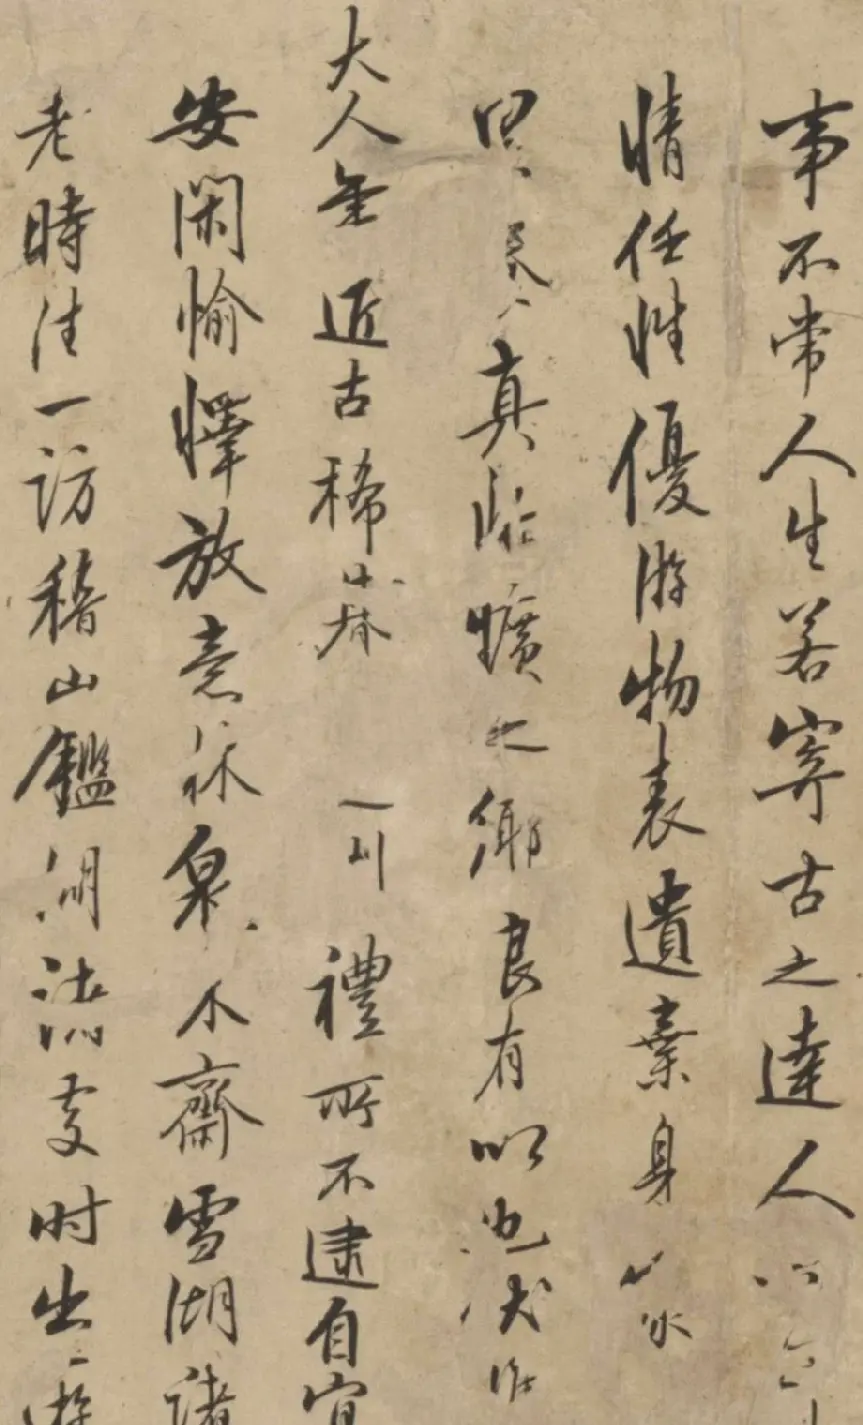 事不常人生若寄古之達人
情任性優游物表遺棄身
真恬曠之鄉良有以也伏惟
大人年近古稀禮所不逮自宜
安閑愉懌放意林泉木齋雪湖諸
老時往一訪稽山鑑湖諸處时出一遊